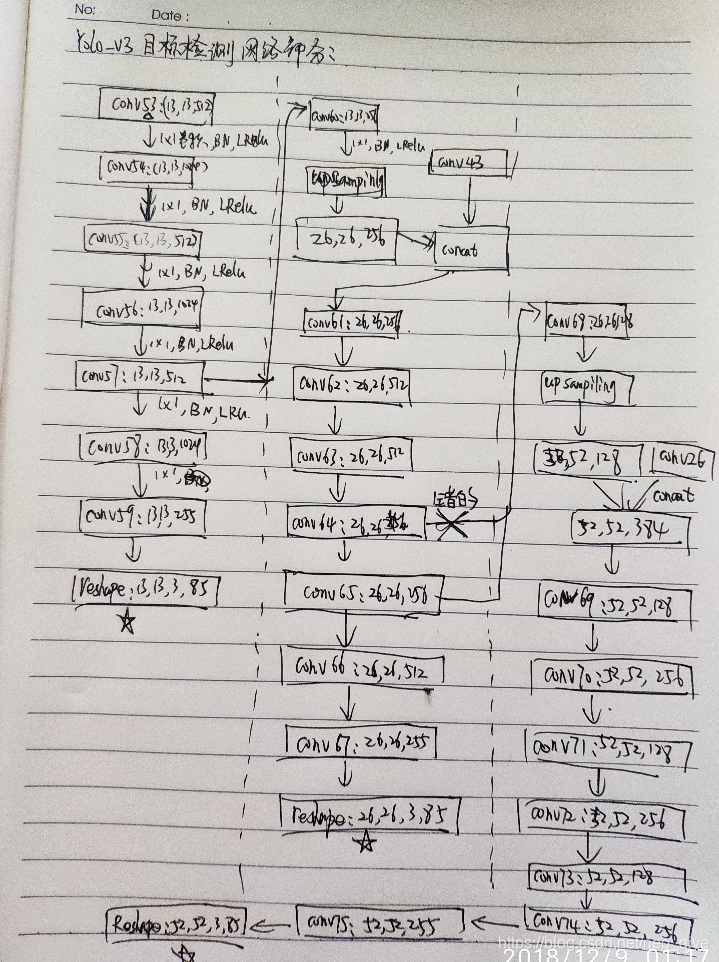 No:
Date:
Yolo_v3 目标检测网络部分:
conv53:(13,13,512)
1x1卷积, BN, LRelu
conv54:(13,13,1024)
1x1, BN, LRelu
conv55:(13,13,512)
1x1, BN, LRelu
conv56:13,13,1024
1x1, BN, LRelu
conv57:13,13,512
1x1, BN, LRu.
conv58:13,13,1024
1x1,
conv59:13,13,255
reshape:13,13,3,85
conv60:13,13,256
1x1, BN, LRelu
upsampling
conv43
26,26,256
concat
conv61:26,26,256
conv62:26,26,512
conv63:26,26,512
conv64:26,26,256
conv65:26,26,256
conv66:26,26,512
conv67:26,26,255
reshape:26,26,3,85
conv68:26,26,128
upsampiling
52,128
conv26
concat
52,52,384
conv69:52,52,128
conv70:52,52,256
conv71:52,52,128
conv72:52,52,256
conv73:52,52,128
conv74:52,52,256
conv75:52,52,255
Reshape:52,52,3,85
2018/12/9 01:17